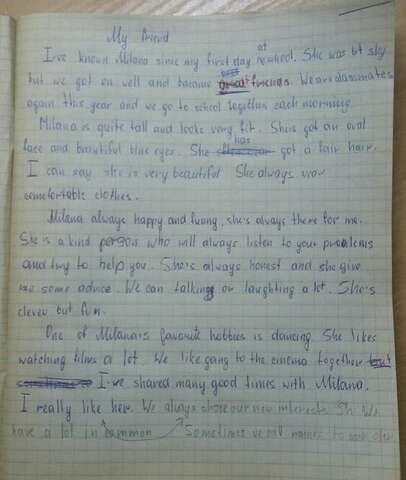 My friend
I've known Milana since my first day at school. She was bit shy
but we got on well and became best friends. We are classmates
again this year and we go to school together each morning.
Milana is quite tall and looks very fit. She's got an oval
face and beautiful blue eyes. She has got a fair hair.
I can say she is very beautiful. She always wear
comfortable clothes.
Milana always happy and funny, she's always there for me.
She is a kind person who will always listen to your problems
and try to help you. She's always honest and she give
me some advice. We can talking or laughting a lot. She's
clever but fun.
One of Milana's favorite hobbies is dancing. She likes
watching films a lot. We like going to the cinema together
I've shared many good times with Milana.
I really like her. We always share our new interests. We
have a lot in common Sometimes we call names to each other